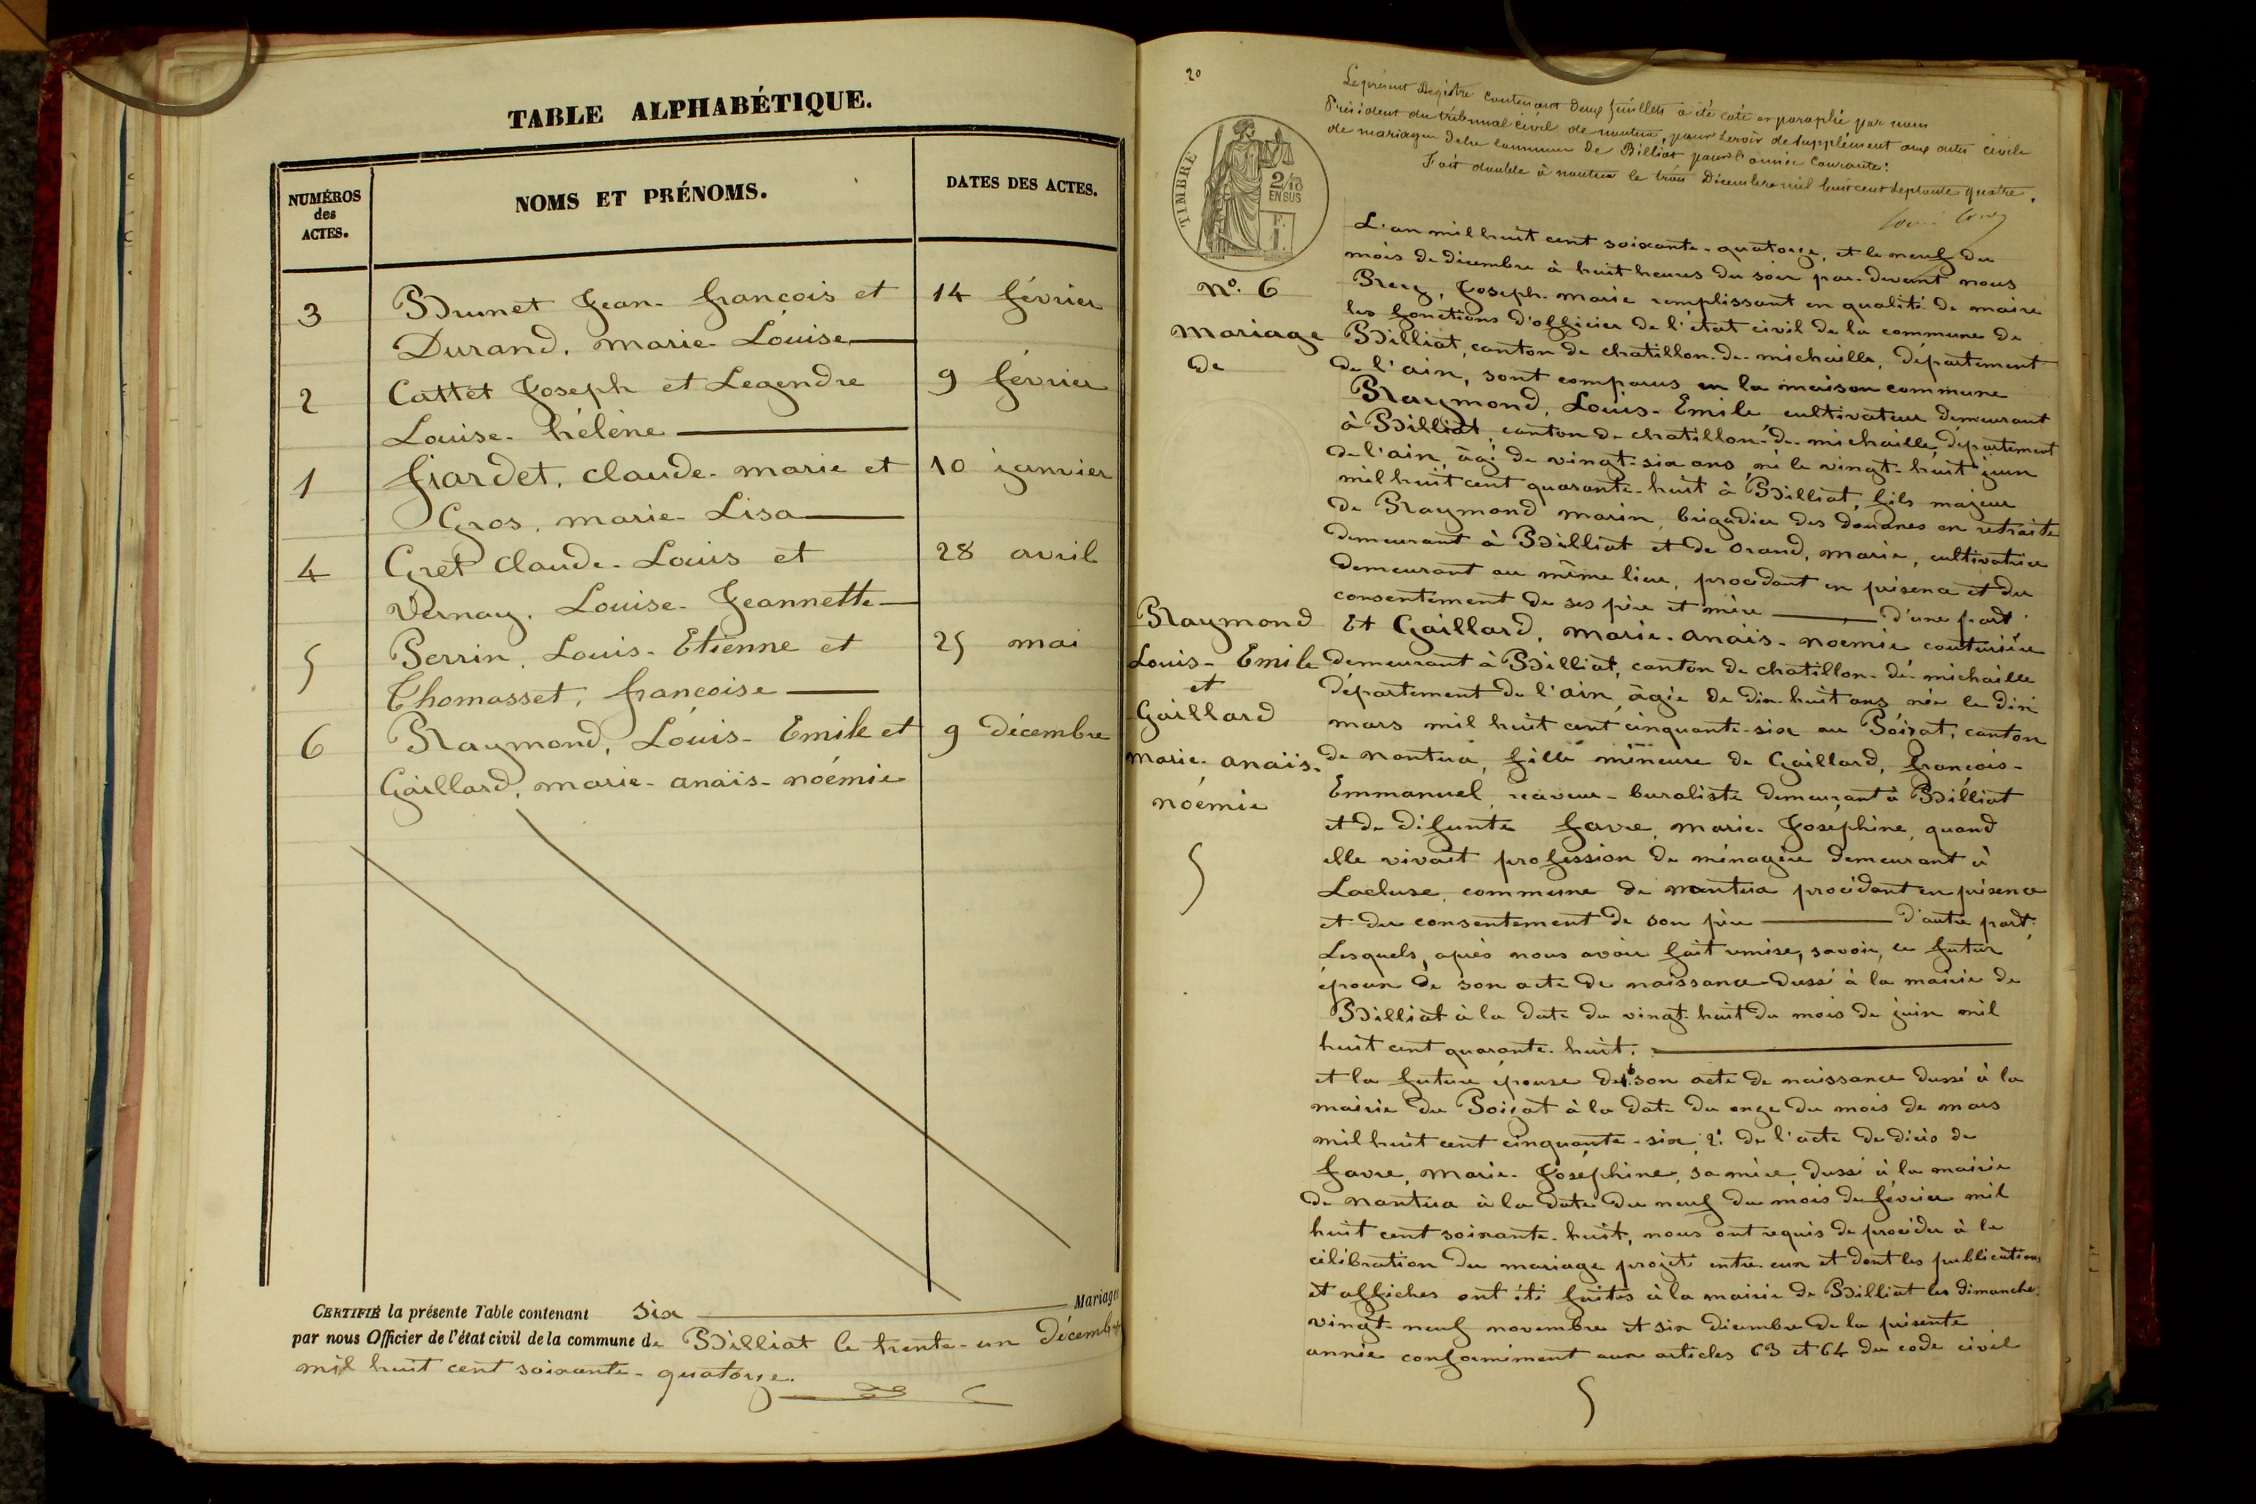 TABLE ALPHABÉTIQUE.
NUMÉROS
des
ACTES.
NOMS ET PRÉNOMS.
DATES DES ACTES.
3 Brunet Jean-françois et 14 février
Durand, marie-Louise
2 Cattet Joseph et Legendre 9 février
Louise-hélène
1 fiardet, claude-marie et 10 janvier
Gros, marie-Lisa
4 Gret claude-Louis et 28 avril
Vernay, Louise-Jeannette
5 Perrin, Louis-Etienne et 25 mai
Thomasset, françoise
6 Raymond, Louis-Emile et 9 décembre
Gaillard, marie-anaïs-noémie
CERTIFIÉ la présente Table contenant six Mariages
par nous Officier de l'état civil de la commune de Billiat le trente-un Décembre
mil huit cent soixante-quatorze.
20
Le présent Registre contenant deux feuillets a été coté et paraphé par nous
Président du tribunal civil de nantua, pour servir de supplément aux actes civils
de mariages de la commune de Billiat pour l'année courante.
Fait double à nantua le trois Décembre mil huit cent septante quatre.
TIMBRE
2/10
EN SUS
No. 6
mariage
de
Raymond
Louis-Emile
et
Gaillard
marie-anaïs-
noémie
L'an mil huit cent soixante-quatorze, et le neuf du
mois de décembre à huit heures du soir par-devant nous
Joseph-marie remplissant en qualité de maire
les fonctions d'officier de l'état civil de la commune de
Billiat, canton de chatillon-de-michaille, département
de l'ain, sont comparus en la maison commune
Raymond, Louis-Emile cultivateur demeurant
à Billiat, canton de chatillon-de-michaille, département
de l'ain, âgé de vingt-six ans, né le vingt-huit juin
mil huit cent quarante-huit à Billiat, fils majeur
de Raymond marin, brigadier des douanes en retraite
demeurant à Billiat et de orand, marie, cultivatrice
demeurant au même lieu, procédant en présence et du
consentement de ses père et mère d'une part.
Et Gaillard, marie-anaïs-noemie couturière
demeurant à Billiat, canton de chatillon-de-michaille
département de l'ain, âgée de dix-huit ans née le dix
mars mil huit cent cinquante-six au Poizat, canton
de nantua, fille mineure de Gaillard, françois-
Emmanuel, receveur-buraliste demeurant à Billiat
et de défunte favre, marie-Joséphine, quand
elle vivait profession de ménagère demeurant à
Lacluse, commune de nantua procédant en présence
et du consentement de son père d'autre part.
Lesquels, après nous avoir fait remise, savoir, le futur
époux de son acte de naissance dressé à la mairie de
Billiat à la date du vingt-huit du mois de juin mil
huit cent quarante-huit.
et la future épouse de 1° son acte de naissance dressé à la
mairie du Poizat à la date du onze du mois de mars
mil huit cent cinquante-six 2° de l'acte de décès de
favre, marie-Joséphine, sa mère, dressé à la mairie
de nantua à la date du neuf du mois de février mil
huit cent soixante-huit, nous ont requis de procéder à la
célébration du mariage projeté entre eux et dont les publications
et affiches ont été faites à la mairie de Billiat les dimanches
vingt-neuf novembre et six décembre de la présente
année conformément aux articles 63 et 64 du code civil